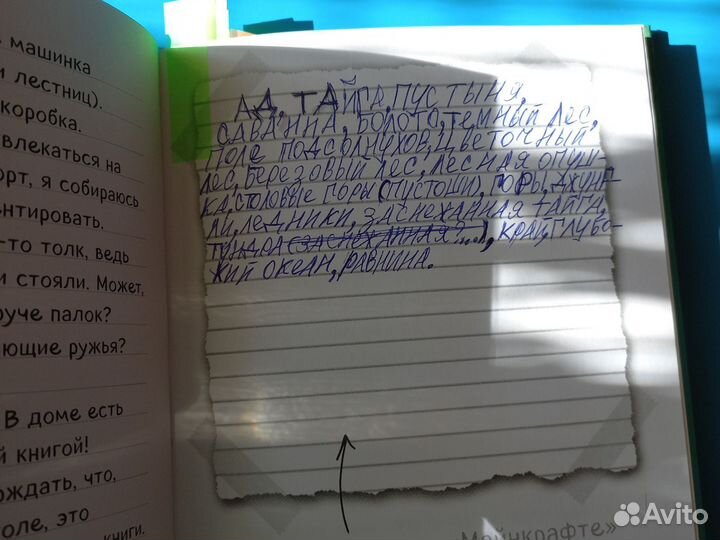 машинка
и лестниц).
коробка.
влекаться на
орт, я собираюсь
ентировать.
-то толк, ведь
и стояли. Может,
руче палок?
ающие ружья?
В доме есть
й книгой!
ождать, что,
оле, это
книги.
АД, ТАЙГА, ПУСТЫНЯ,
САВАННА, БОЛОТО, ТЕМНЫЙ ЛЕС,
ПОЛЕ ПОДСОЛНУХОВ, ЦВЕТОЧНЫЙ
ЛЕС, БЕРЕЗОВЫЙ ЛЕС, ЛЕСНАЯ ОПУШ-
КА, СТОЛОВЫЕ ГОРЫ (ПУСТОШИ), ГОРЫ, ДЖУНГ-
ЛИ, ЛЕДНИКИ, ЗАСНЕХАННАЯ ТАЙГА,
ТУНДРА (ЗАСНЕХАННАЯ?.....), КРАЙ, ГЛУБО-
КИЙ ОКЕАН, РАВНИНА.
Майнкрафте»
Avito